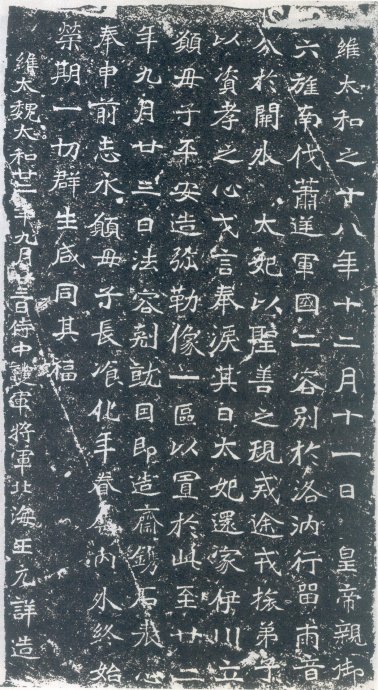 維太和之十八年十二月十一日 皇帝親御
六旌南伐蕭逆軍國二容別於洛汭行留兩音
分於關外 太妃以聖善之規戒途戎旅弟子
以資孝之心戈言奉淚其日太妃還家伊川立
願母子平安造弥勒像一區以置於此至廿二
年九月廿三日法容剋就因即造齋鐫石表心
奉申前志永願母子長飡化年眷屬內外終始
榮期一切群生咸同其福
維大魏太和廿二年九月廿三日侍中護軍將軍北海王元詳造